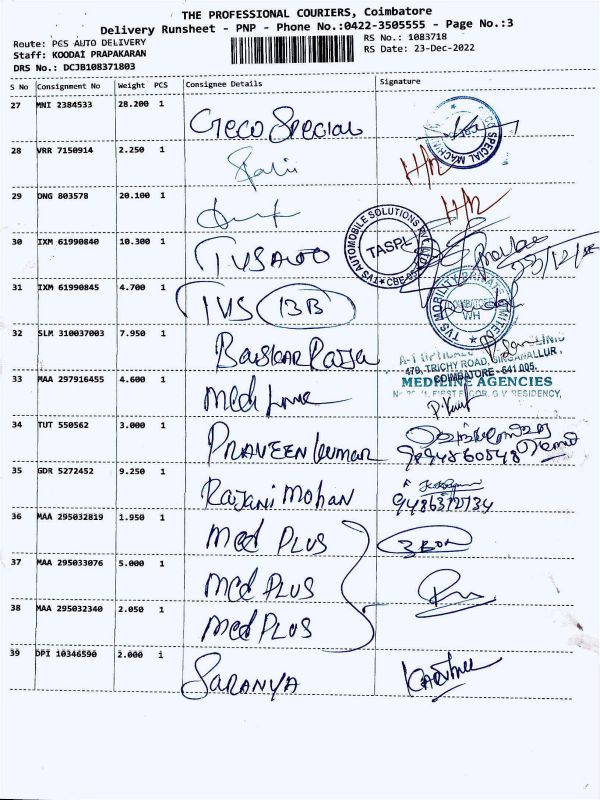 THE PROFESSIONAL COURIERS, Coimbatore
Delivery Runsheet - PNP - Phone No.:0422-3505555 - Page No.:3
Route: PCS AUTO DELIVERY
RS No.: 1083718
Staff: KOODAI PRAPAKARAN
RS Date: 23-Dec-2022
DRS No.: DCJB108371803
S No Consignment No Weight PCS Consignee Details Signature
27 MNI 2384533 28.200 1 Geco Special
28 VRR 7150914 2.250 1
29 DNG 803578 20.100 1
30 IXM 61990840 10.300 1 TVS Auto
TVS AUTOMOBILE SOLUTIONS PVT LTD
TASPL
31 IXM 61990845 4.700 1 TVS 13B
COIMBATORE
WH
32 SLM 310037003 7.950 1 Baskar Raja
479, TRICHY ROAD, SINGANALLUR,
COIMBATORE - 641 005.
33 MAA 297916455 4.600 1 Medi
MEDICINE AGENCIES
FIRST FLOOR, G.V. RESIDENCY,
34 TUT 550562 3.000 1 PRAVEEN kumar
9894860548
35 GDR 5272452 9.250 1 Rajani Mohan
9486372734
36 MAA 295032819 1.950 1 Med PLUS
37 MAA 295033076 5.000 1 Med PLUS
38 MAA 295032340 2.050 1 Med PLUS
39 DPI 10346590 2.000 1 SARANYA